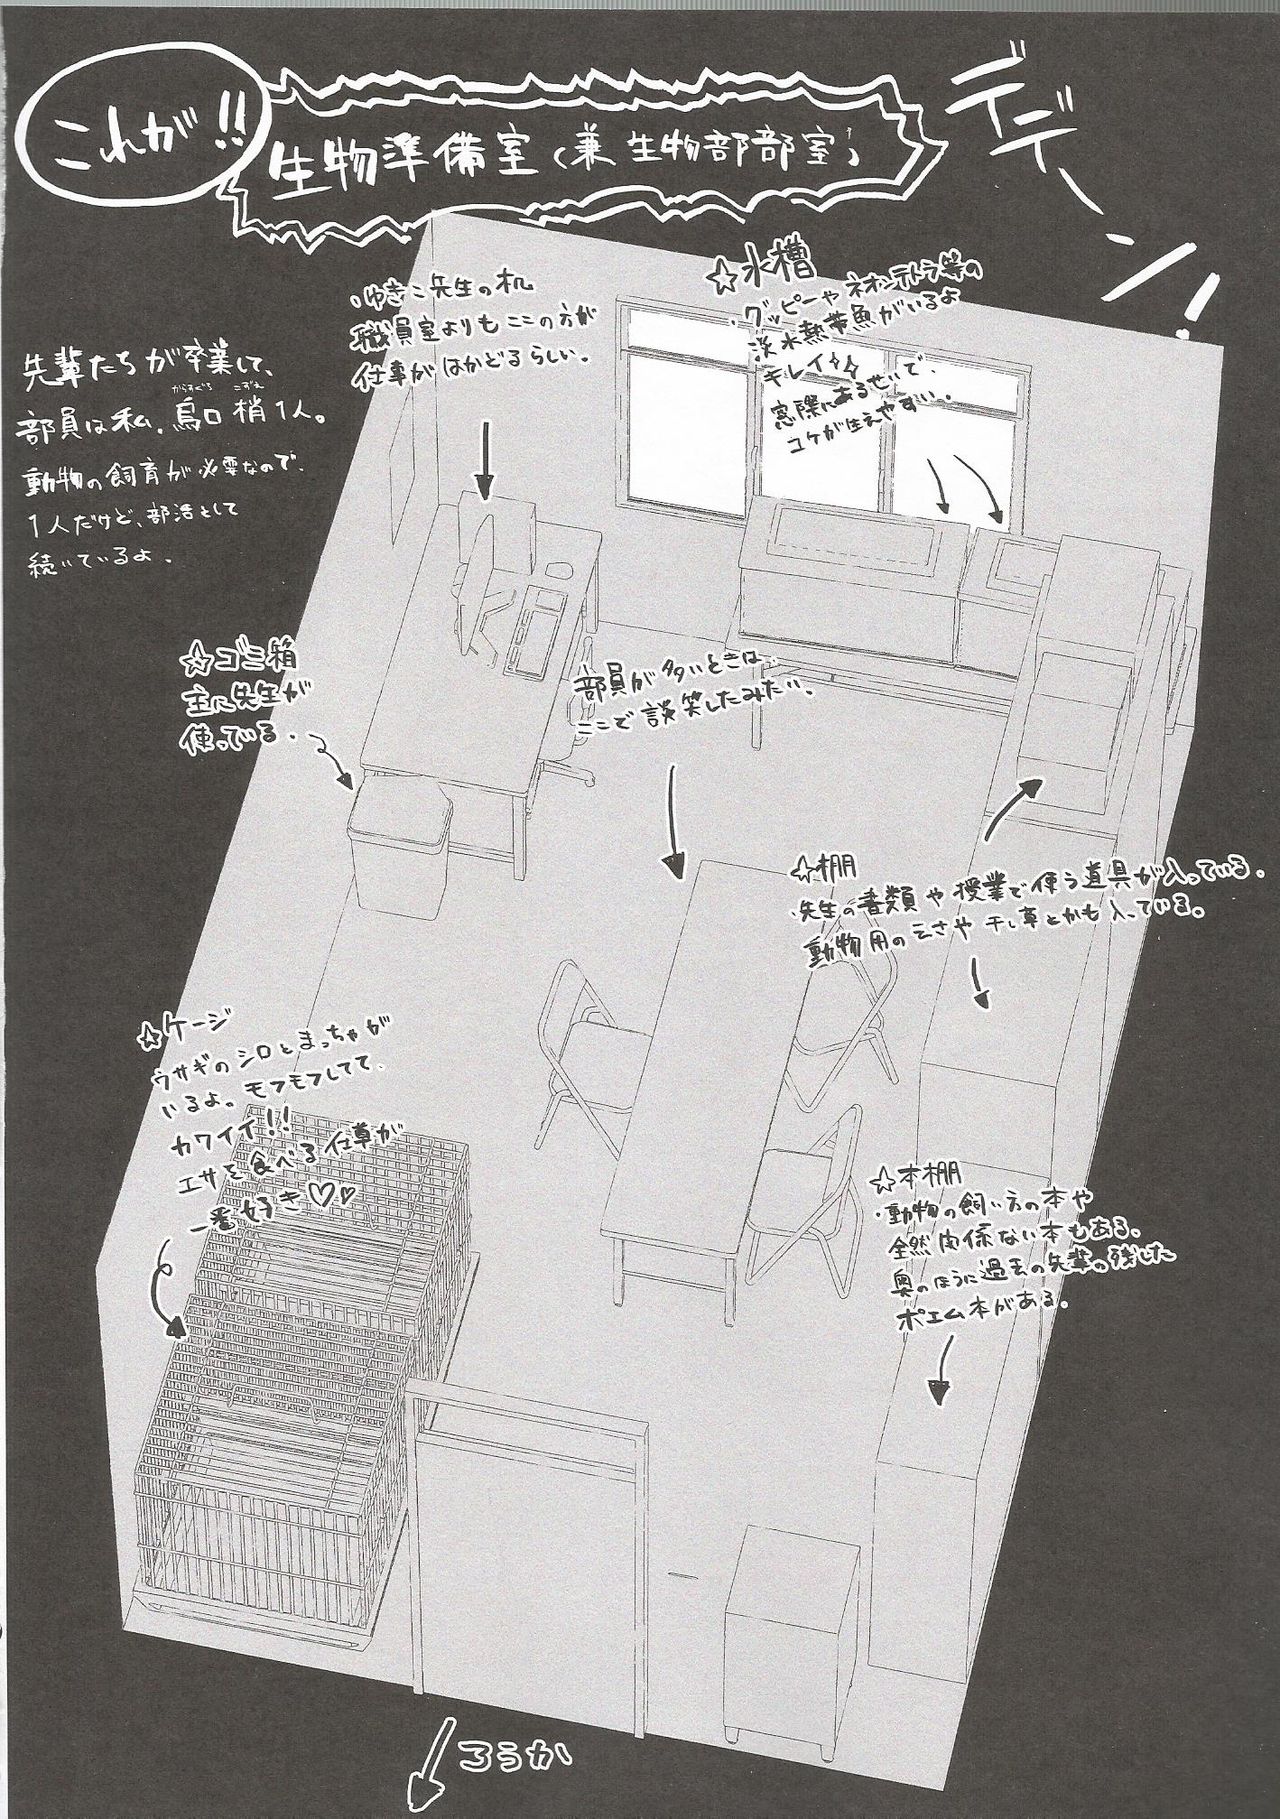 これが!!
生物準備室(兼生物部部室)
デデーン!
先輩たちが卒業して、
部員は私、烏口 梢1人。
からすぐち こずえ
動物の飼育が必要なので、
1人だけど、部活として
続いているよ。
・ゆきこ先生の机
職員室よりもここの方が
仕事がはかどるらしい。
☆水槽
・グッピーやネオンテトラ等の
淡水熱帯魚がいるよ
キレイ
窓際にあるせいで、
コケが生えやすい。
☆ゴミ箱
主に先生が
使っている。
部員が多いときは
ここで談笑したみたい。
☆棚
・先生の書類や授業で使う道具が入っている。
動物用のえさや干し草とかも入っている。
☆ケージ
ウサギのシロとまっちゃが
いるよ。モフモフしてて、
カワイイ!!
エサを食べる仕草が
一番好き♡♡
☆本棚
・動物の飼い方の本や
全然関係ない本もある。
奥のほうに過去の先輩の残した
ポエム本がある。
ろうか